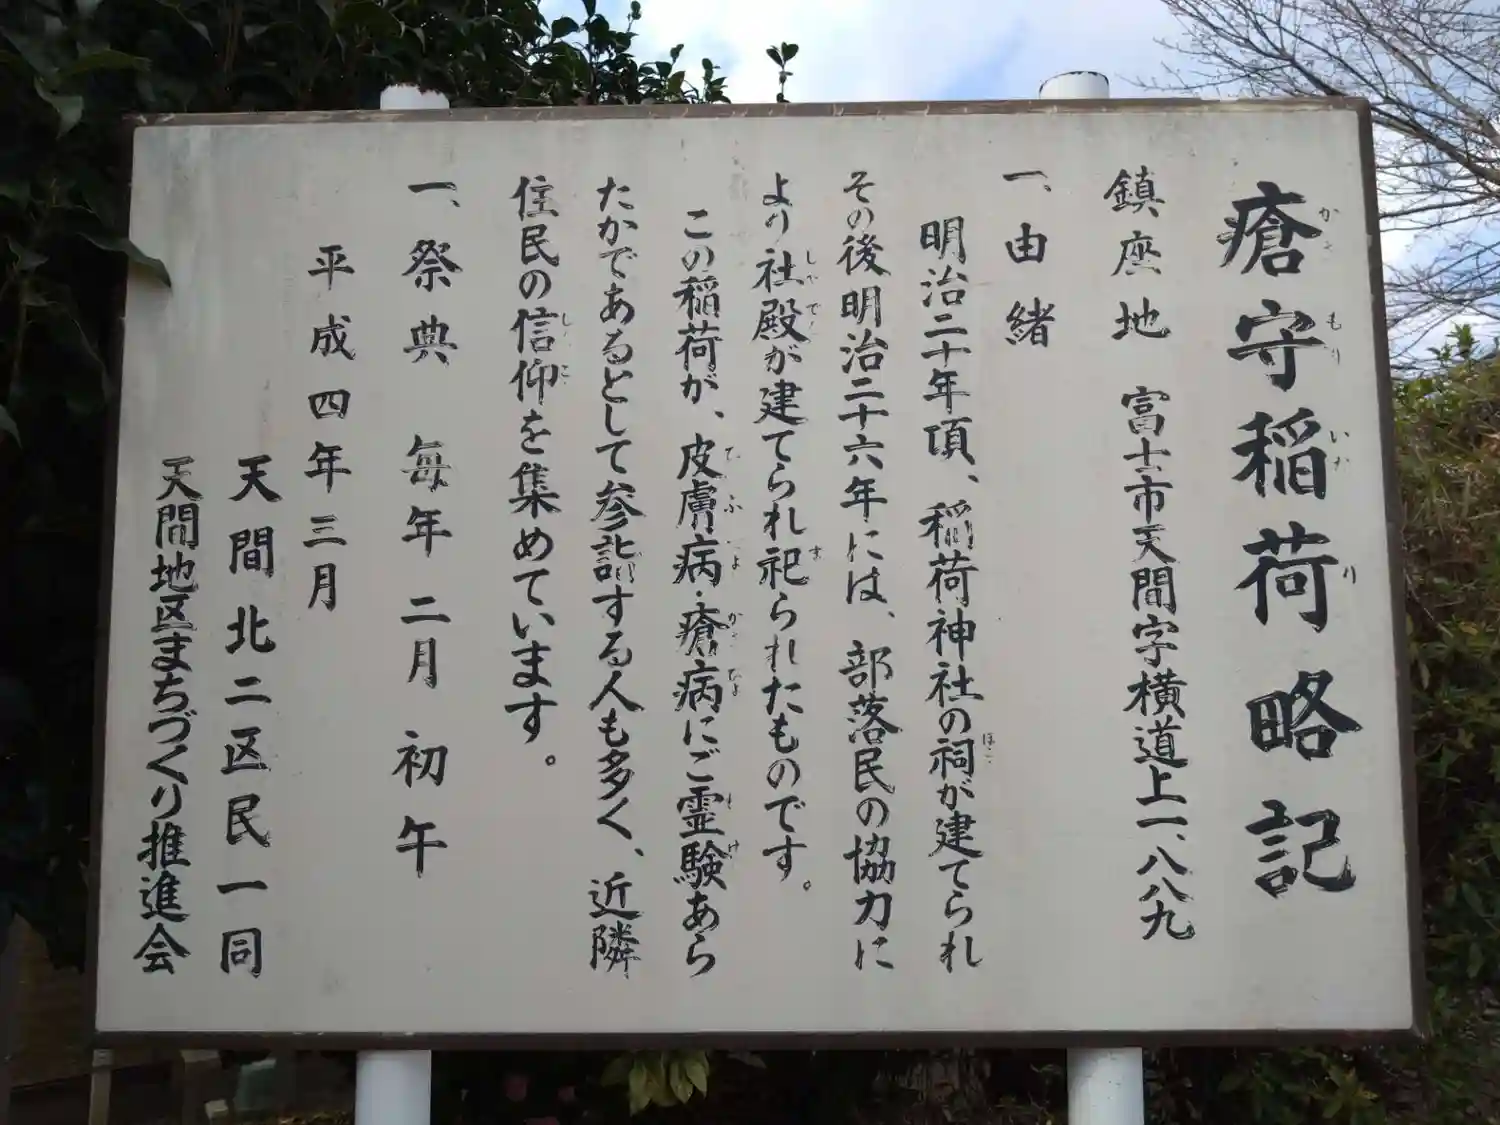 瘡守稲荷略記
鎮座地 富士市天間字横道上一、八八九
一、由緒
明治二十年頃、稲荷神社の祠が建てられ
その後明治二十六年には、部落民の協力に
より社殿が建てられ祀られたものです。
この稲荷が、皮膚病・瘡病にご霊験あら
たかであるとして参詣する人も多く、近隣
住民の信仰を集めています。
一、祭典 毎年二月 初午
平成四年三月
天間北二区民一同
天間地区まちづくり推進会